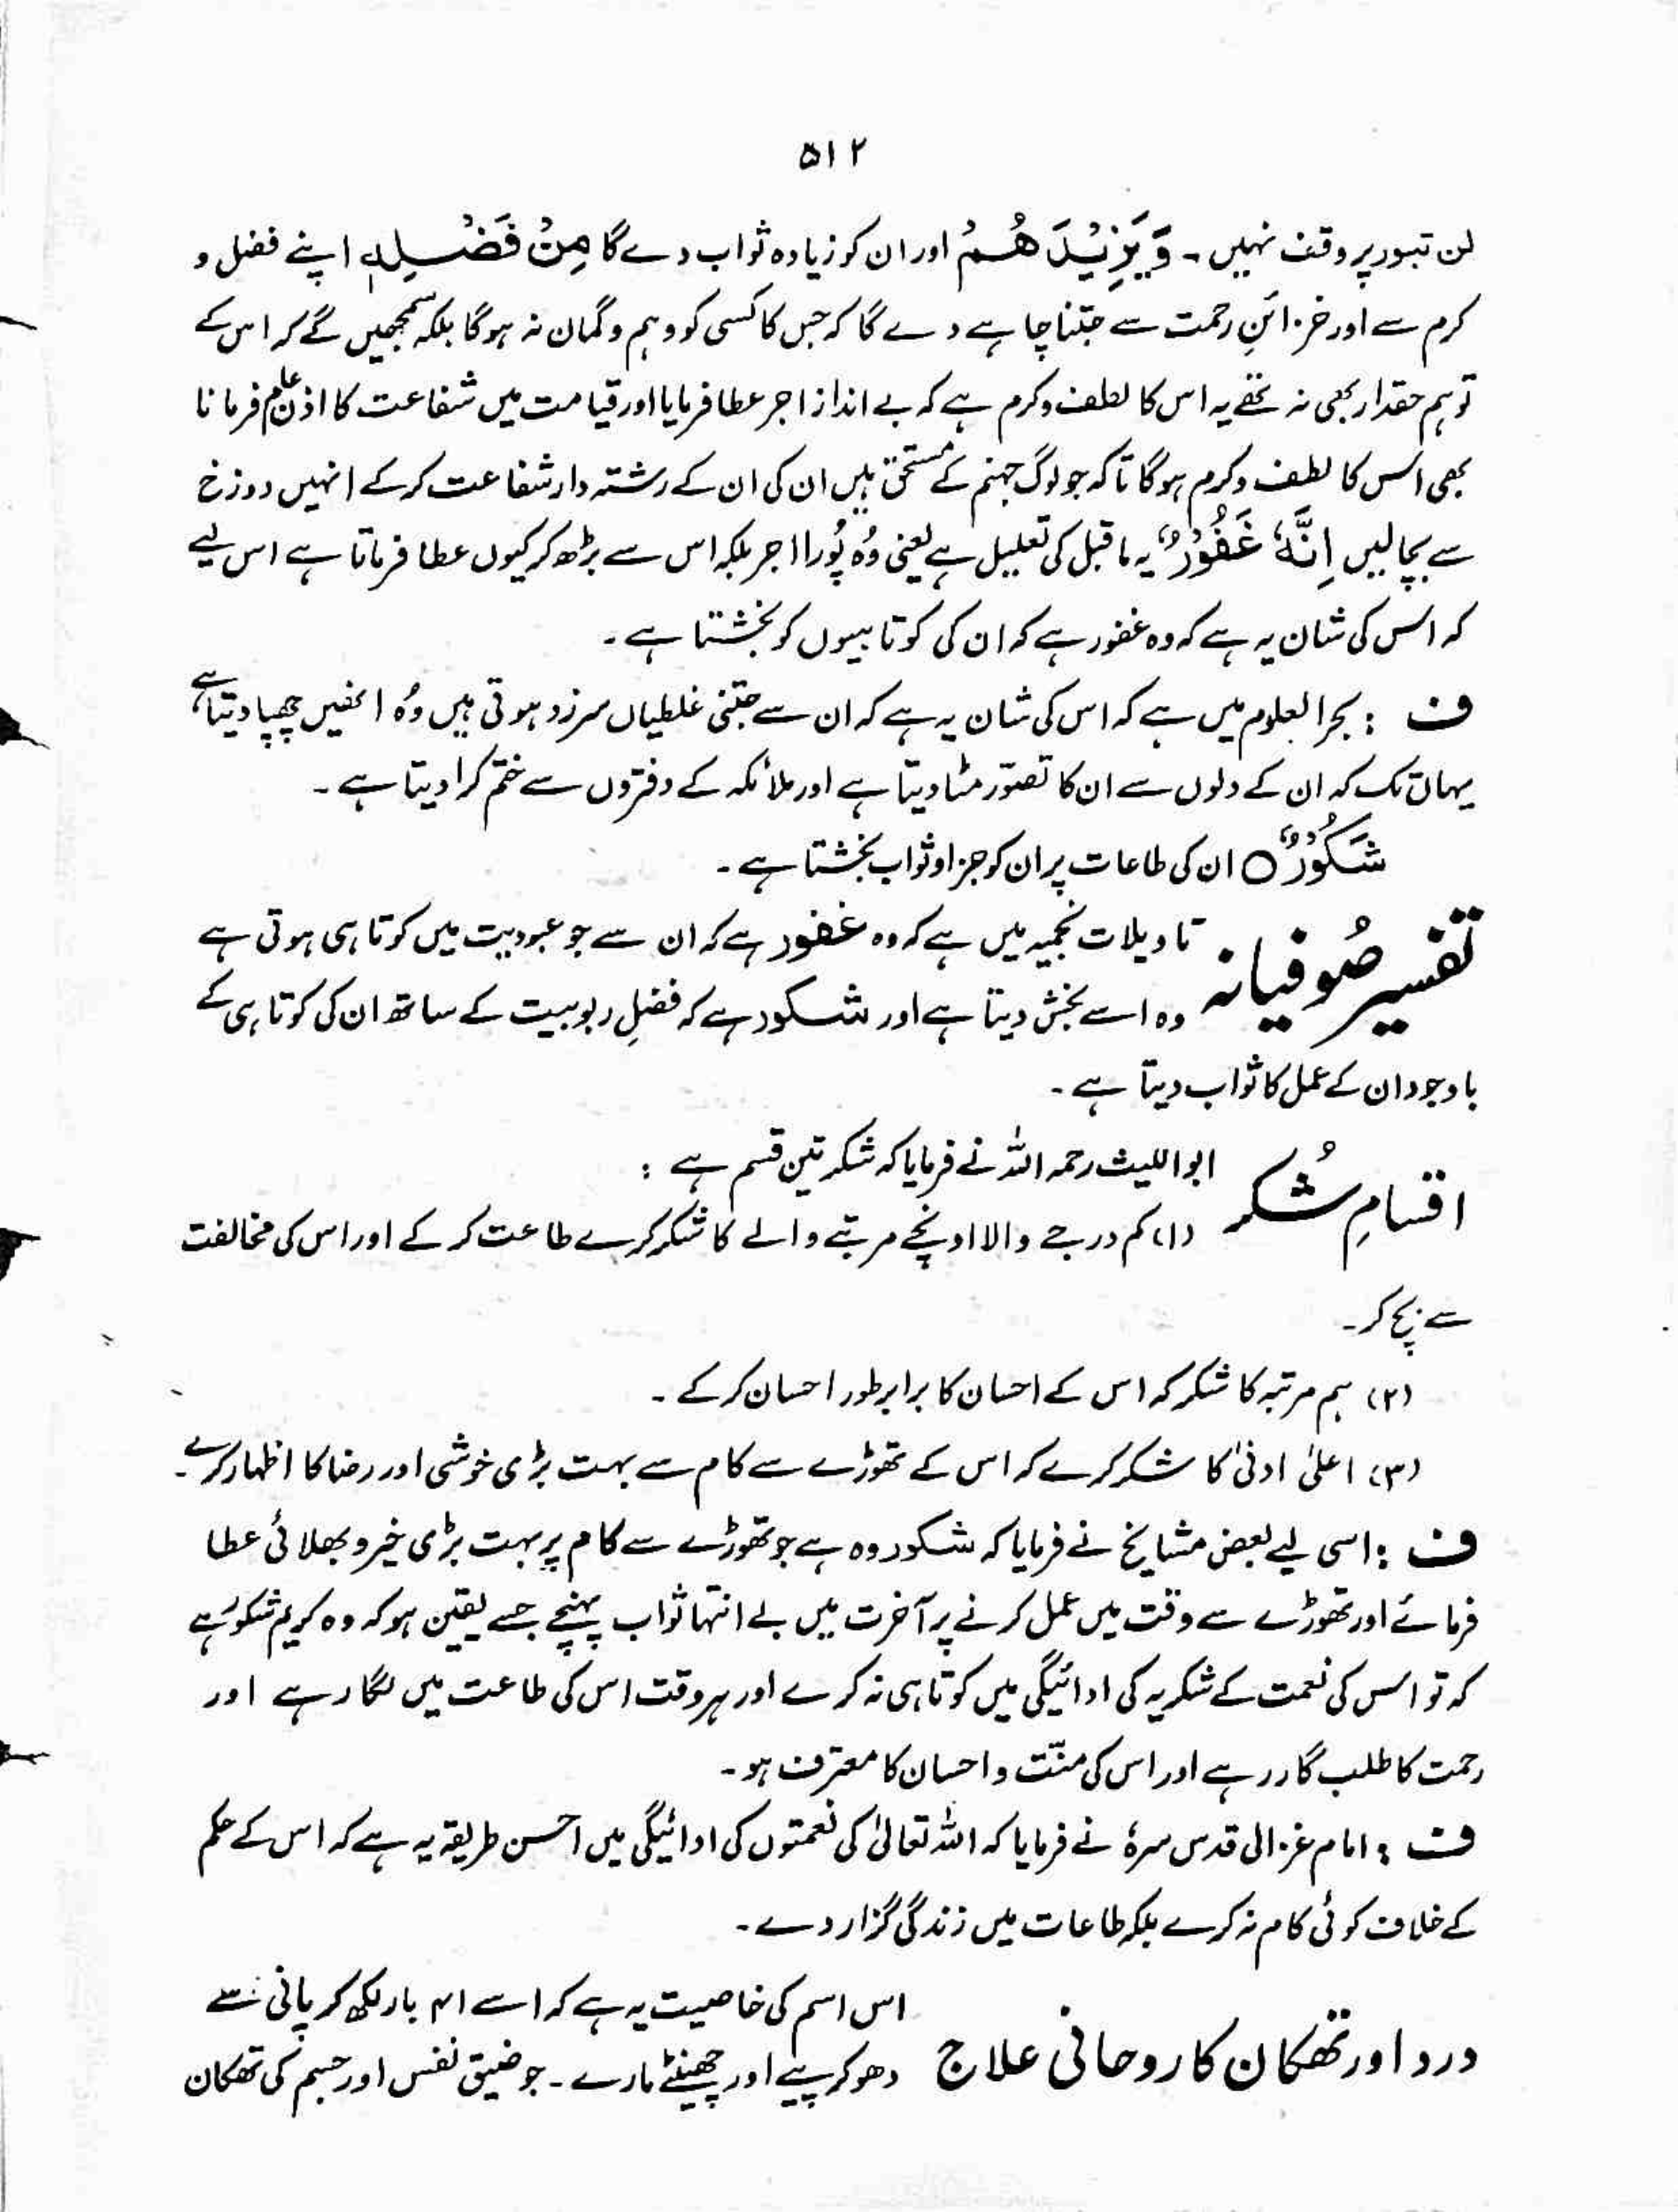 ۵۱۲
لن تبور پر وقف نہیں ۔ وَیَزِیْدَ ھُمْ اور ان کو زیادہ ثواب دے گا مِنْ فَضْلِہٖ اپنے فضل و
کرم سے اور خزائنِ رحمت سے جتنا چاہے دے گا کہ جس کا کسی کو وہم و گمان نہ ہوگا بلکہ سمجھیں گے کہ اس کے
تو ہم حقدار بھی نہ تھے یہ اس کا لطف و کرم ہے کہ بے انداز اجر عطا فرمایا اور قیامت میں شفاعت کا اذنِ عام فرمانا
بھی اس کا لطف و کرم ہوگا تاکہ جو لوگ جہنم کے مستحق ہیں ان کی ان کے رشتہ دار شفاعت کرکے انہیں دوزخ
سے بچالیں اِنَّہٗ غَفُوْرٌ یہ ماقبل کی تعلیل ہے یعنی وُہ پُورا اجر بلکہ اس سے بڑھ کر کیوں عطا فرماتا ہے اس لیے
کہ اس کی شان یہ ہے کہ وہ غفور ہے کہ ان کی کوتاہیوں کو بخشتا ہے ۔
ف : بحرالعلوم میں ہے کہ اس کی شان یہ ہے کہ ان سے جتنی غلطیاں سرزد ہوتی ہیں وُہ انھیں چھپا دیتا ہے
یہاں تک کہ ان کے دلوں سے ان کا تصوّر مٹا دیتا ہے اور ملائکہ کے دفتروں سے ختم کرا دیتا ہے ۔
شَکُوْرٌ ○ ان کی طاعات پر ان کو جزا و ثواب بخشتا ہے ۔
تفسیر صُوفیانہ تاویلات نجمیہ میں ہے کہ وہ غفور ہے کہ ان سے جو عبودیت میں کوتاہی ہوتی ہے
وہ اسے بخش دیتا ہے اور شکور ہے کہ فضلِ ربوبیت کے ساتھ ان کی کوتاہی کے
باوجود ان کے عمل کا ثواب دیتا ہے ۔
اقسامِ شُکر ابواللیث رحمہ اللہ نے فرمایا کہ شکر تین قسم ہے :
(۱) کم درجے والا اونچے مرتبے والے کا شکر کرے طاعت کر کے اور اس کی مخالفت
سے بچ کر۔
(۲) ہم مرتبہ کا شکر کہ اس کے احسان کا برابر طور احسان کرکے ۔
(۳) اعلیٰ ادنیٰ کا شکر کرے کہ اس کے تھوڑے سے کام سے بہت بڑی خوشی اور رضا کا اظہار کرے۔
ف : اسی لیے بعض مشایخ نے فرمایا کہ شکور وہ ہے جو تھوڑے سے کام پر بہت بڑی خیر و بھلائی عطا
فرمائے اور تھوڑے سے وقت میں عمل کرنے پر آخرت میں بے انتہا ثواب پہنچے جسے یقین ہو کہ وہ کریم شکور ہے
کہ تو اس کی نعمت کے شکریہ کی ادائیگی میں کوتاہی نہ کرے اور ہر وقت اس کی طاعت میں لگا رہے اور
رحمت کا طلب گار رہے اور اس کی منّت و احسان کا معترف ہو ۔
ف : امام غزالی قدس سرہٗ نے فرمایا کہ اللہ تعالیٰ کی نعمتوں کی ادائیگی میں احسن طریقہ یہ ہے کہ اس کے حکم
کے خلاف کوئی کام نہ کرے بلکہ طاعات میں زندگی گزار دے ۔
درد اور تھکان کا روحانی علاج اس اسم کی خاصیت یہ ہے کہ اسے ۴۱ بار لکھ کر پانی سے
دھو کر پیے اور چھینٹے مارے ۔ جو ضیق نفس اور جسم کی تھکان